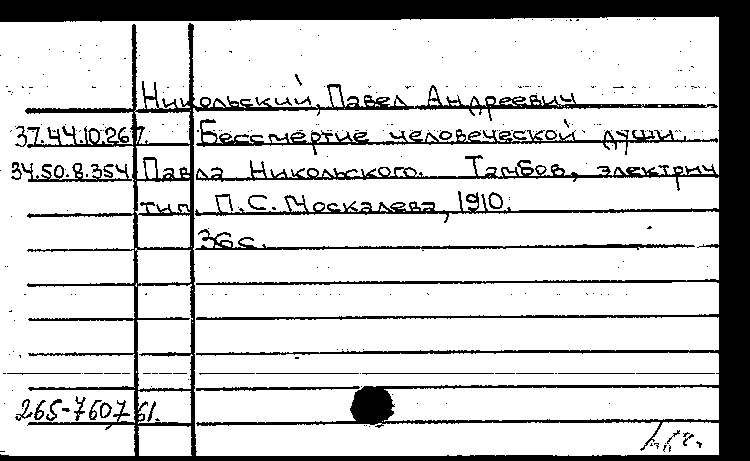 Никольский, Павел Андреевич
37.44.10.267. Бессмертие человеческой души.
34.50.8.354 Павла Никольского. Тамбов, электрич
тип. П.С. Москалева, 1910.
36с.
265-760761.